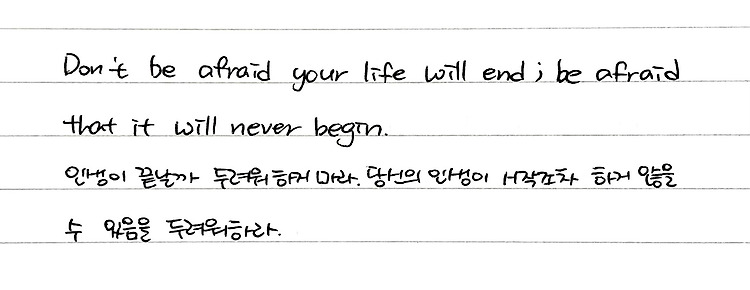 Don't be afraid your life will end; be afraid
that it will never begin.
인생이 끝날까 두려워하지 마라. 당신의 인생이 시작조차 하지 않을
수 있음을 두려워하라.